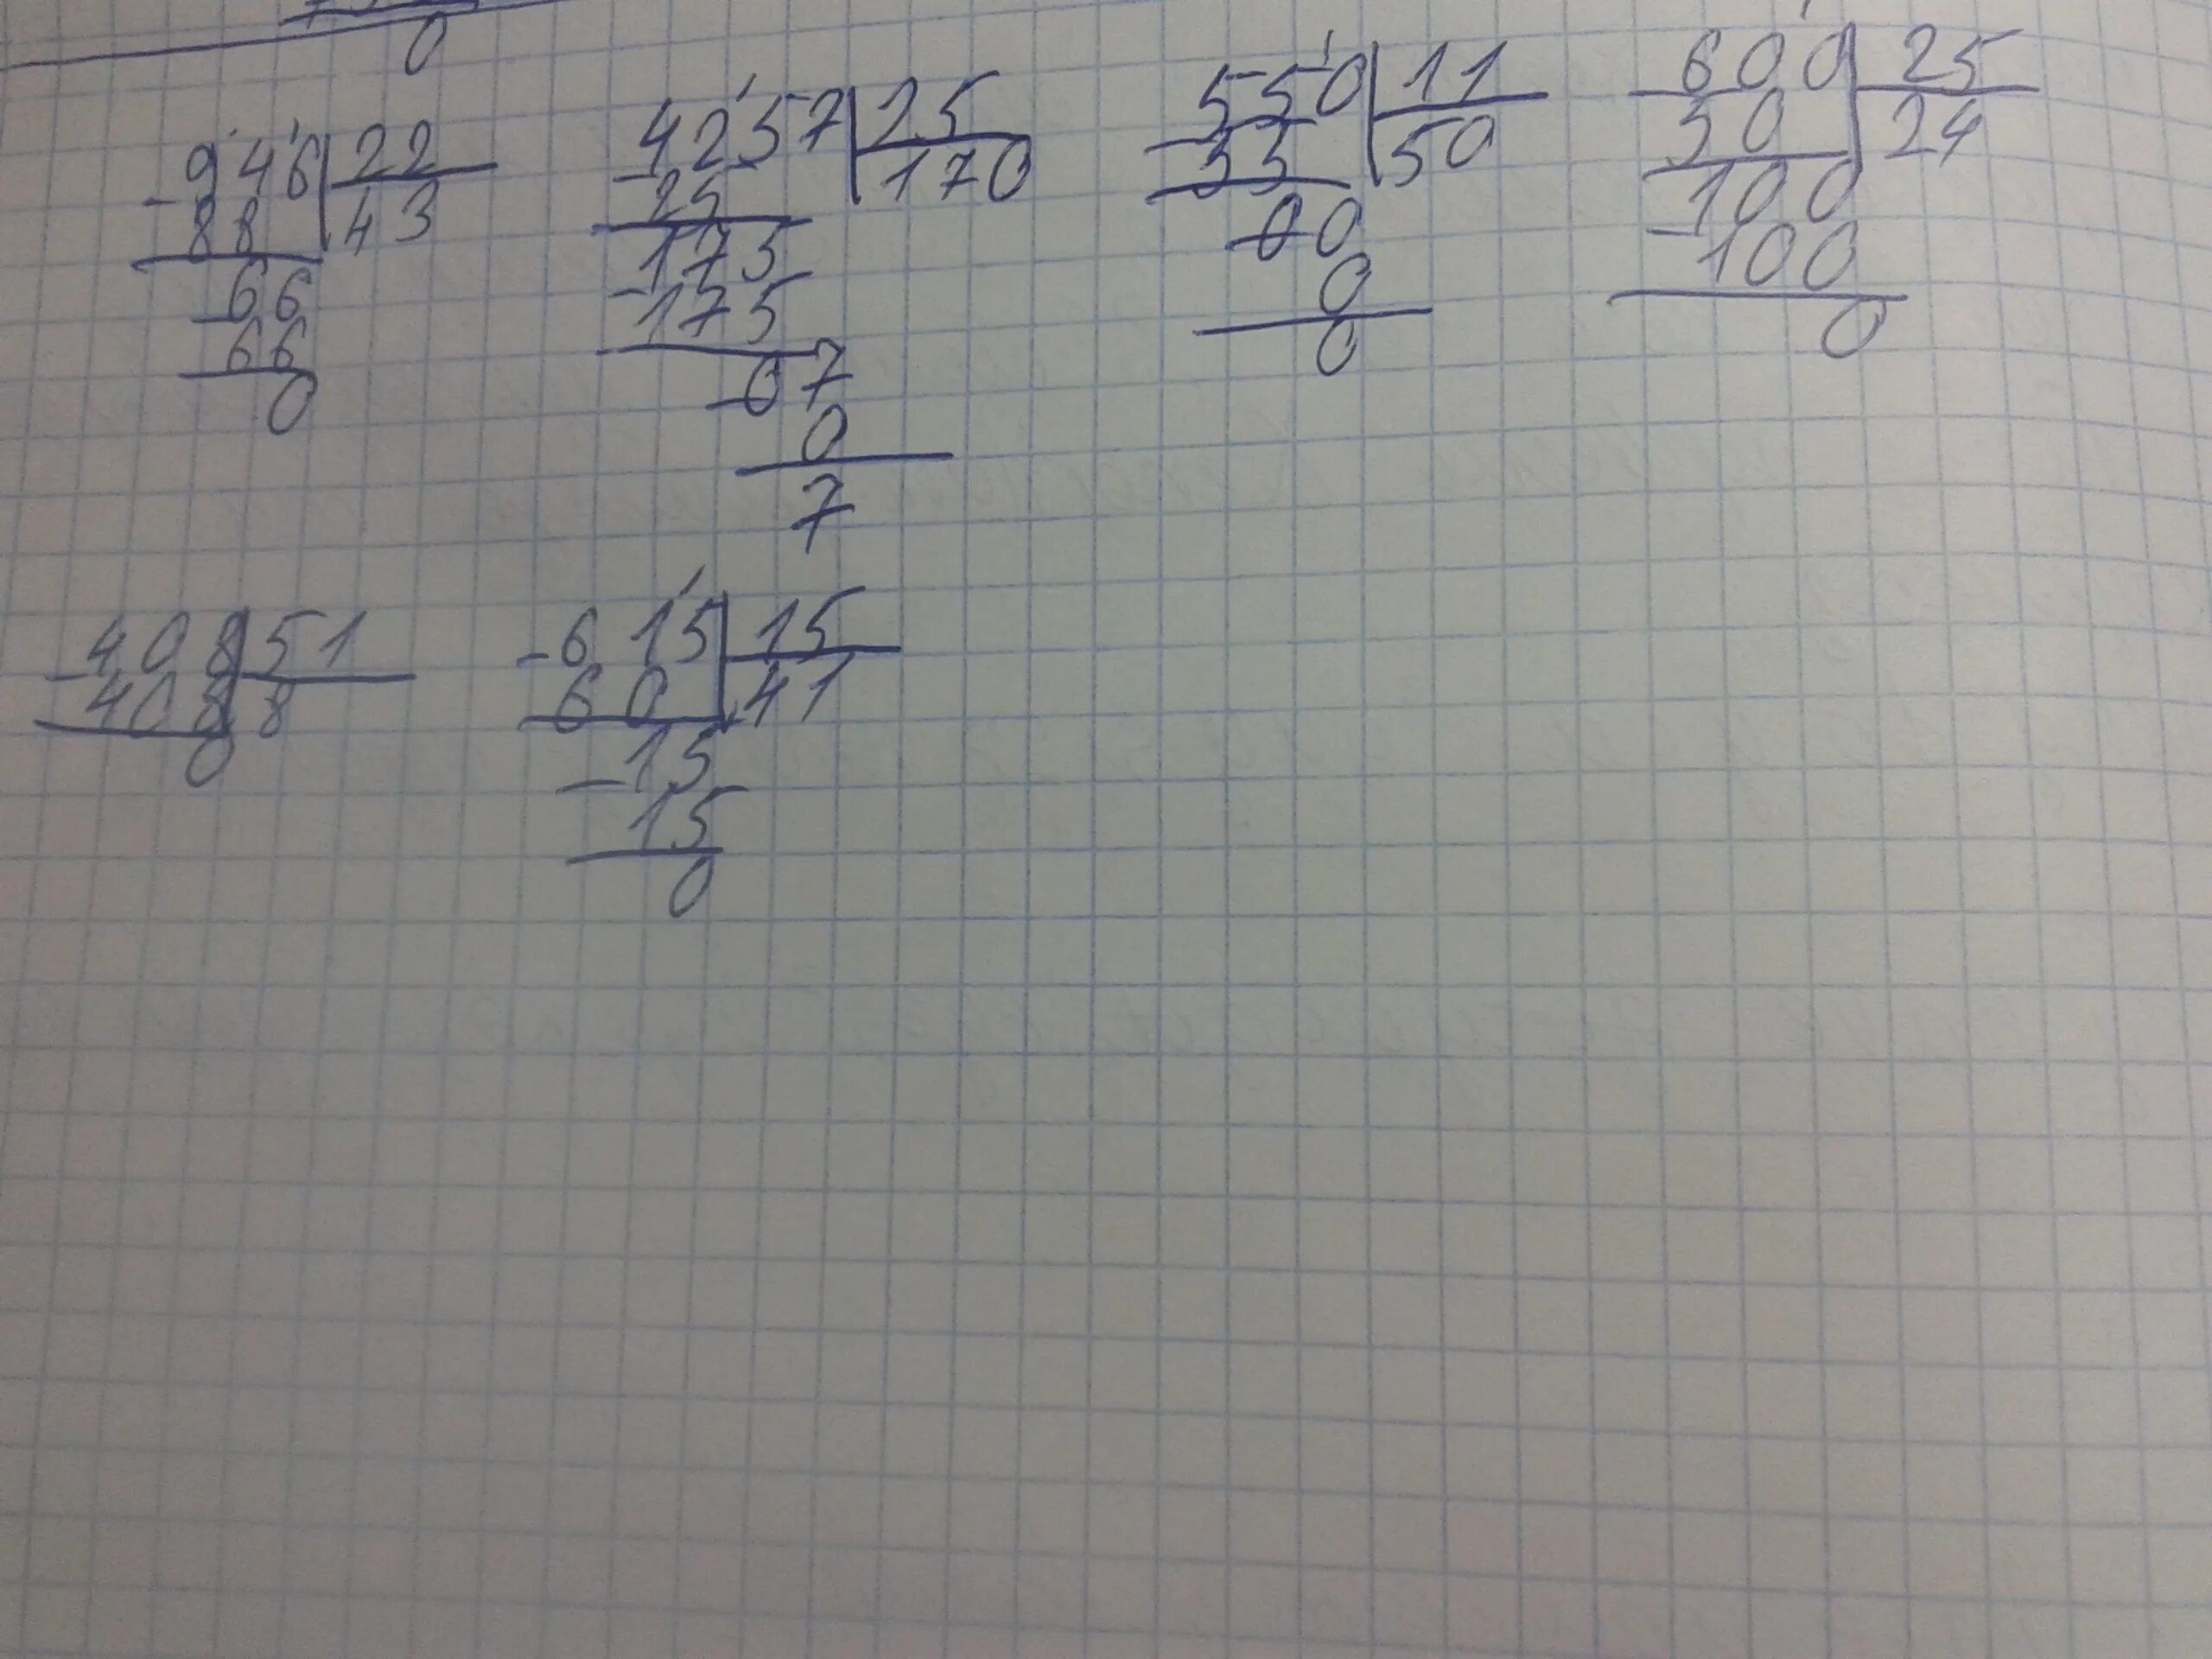 0
946 22
88 43
66
66
0
4257 25
25 170
175
175
07
0
7
550 11
55 50
00
0
0
600 25
50 24
100
100
0
408 51
408 8
0
615 15
60 41
15
15
0